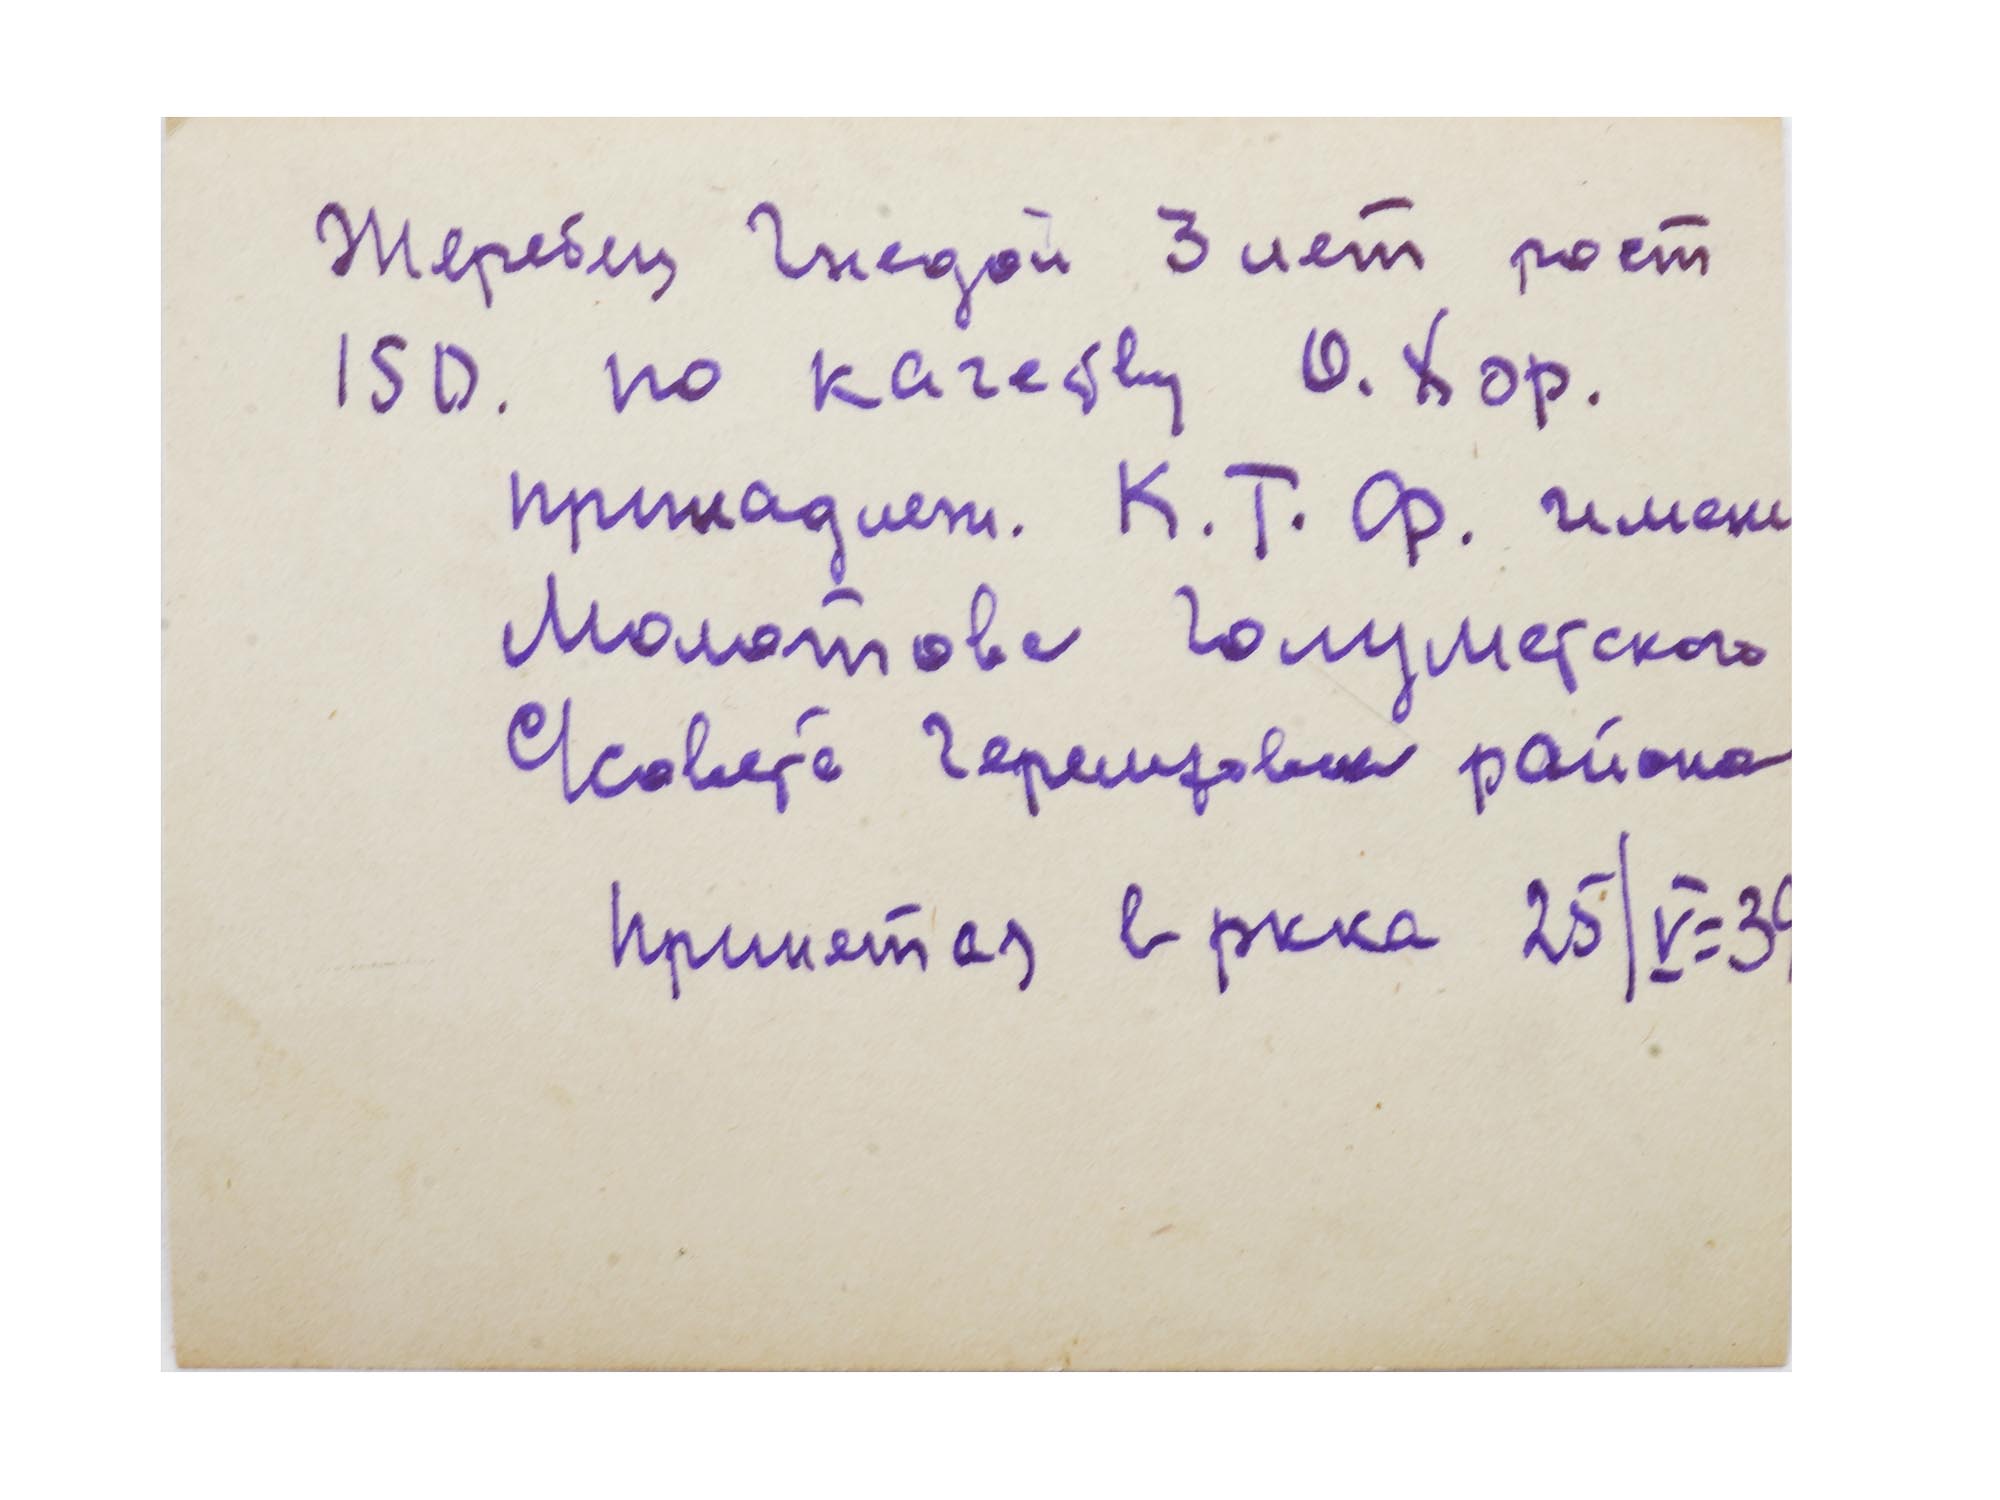 Жеребец Гнедой 3 лет рост
150. по качеству О. Хор.
принадлеж. К. Т. Ф. имени
Молотова Голуметского
С/совета Черемховск района
Принетая в ркка 25/V=39